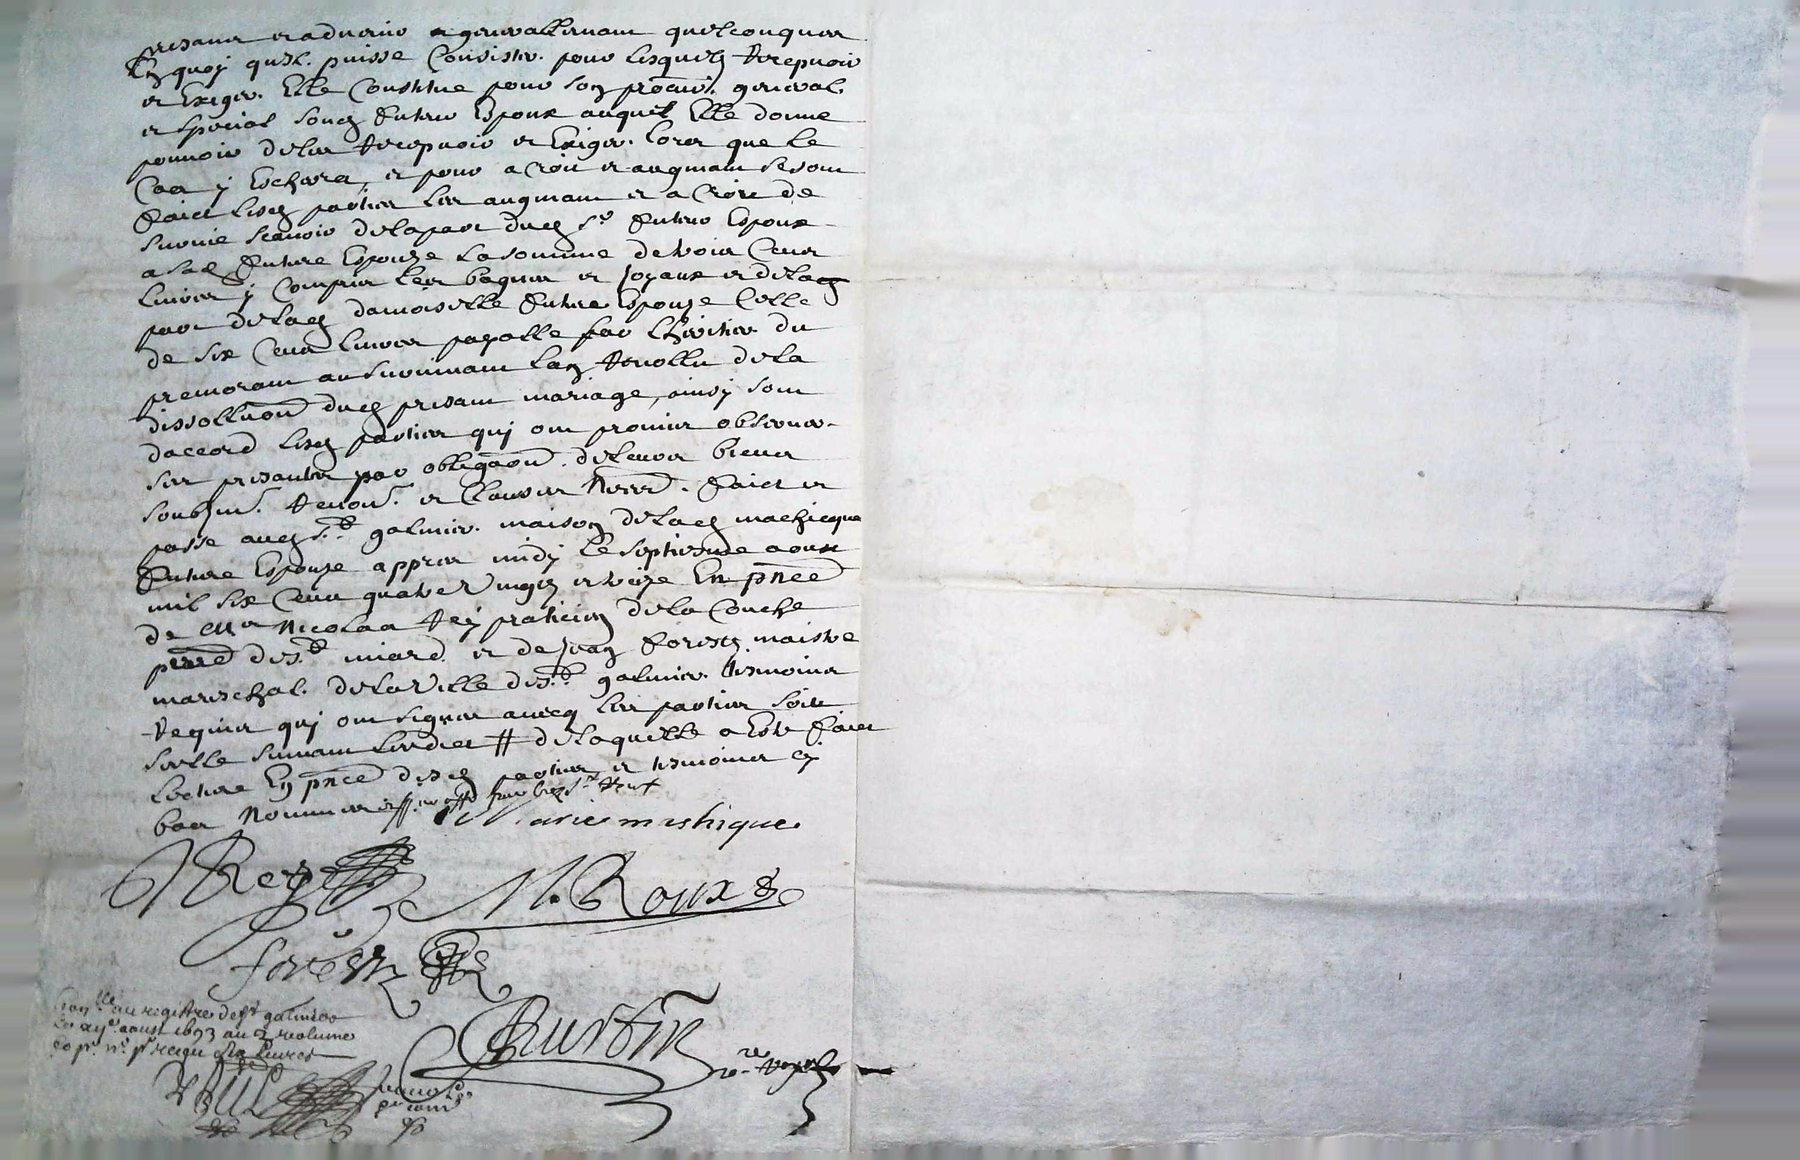 presans et advenir et generallemant quelconques
En quoy quil puisse Consister pour lesquels recepvoir
et Exiger Elle Constitue pour son procur. general
et special sond futur Espoux auquel Elle donne
pouvoir de les recepvoir et Exiger lors que le
Cas y Escherra, et pour acroit et augmant se sont
faict lesd parties les augmant et acroit de
survie scavoir de la part dud sr futur Espoux
a lad future Espouze la somme de trois Cens
livres y Compris les bagues et joyaux et de la
part de lad damoiselle future Espouze Celle
de six Cens livres payable par lheritier du
premorant au survivant lan revollu de la
dissolluon dud presant mariage, ainsy sont
daccord lesd parties quj ont promis observer
ses presantes par obligaon de leurs biens
soubzm. renon. et Clauses necess. faict et
passe aud st galmier maison de lad machicque
future Espouze appres midy le septiesme aoust
mil six Cens quatre vingtz et treize En pnce
de Mre Nicolas rey praticien de la Couche
prre de st miard et de Jean forestz maistre
mareschal de la ville de st galmier tesmoins
requis quj ont signes avecq les parties soit
seelle suivant ledict # de laquelle a Este faict
lecture En pnce desd parties et tesmoins cy
bas Nommes
Marie mashique
Rey
M. Roux
forestz
no.re royal
Con.lle au registre de st galmier
aoust 1693 au 2 volume
receu six livres